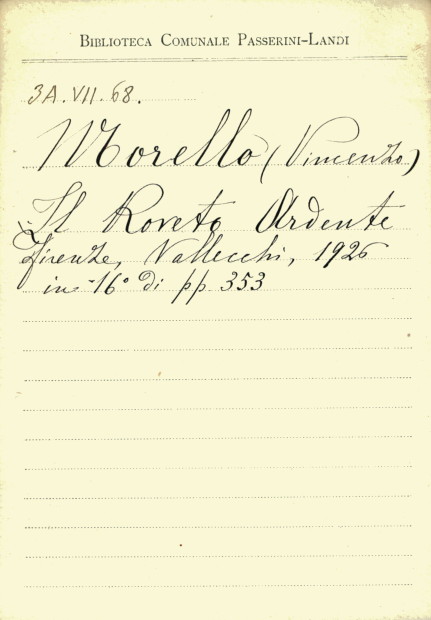 BIBLIOTECA COMUNALE PASSERINI-LANDI
3A.VII.68.
Morello (Vincenzo)
Il Roveto Ardente
Firenze, Vallecchi, 1926
in-16° di pp. 353